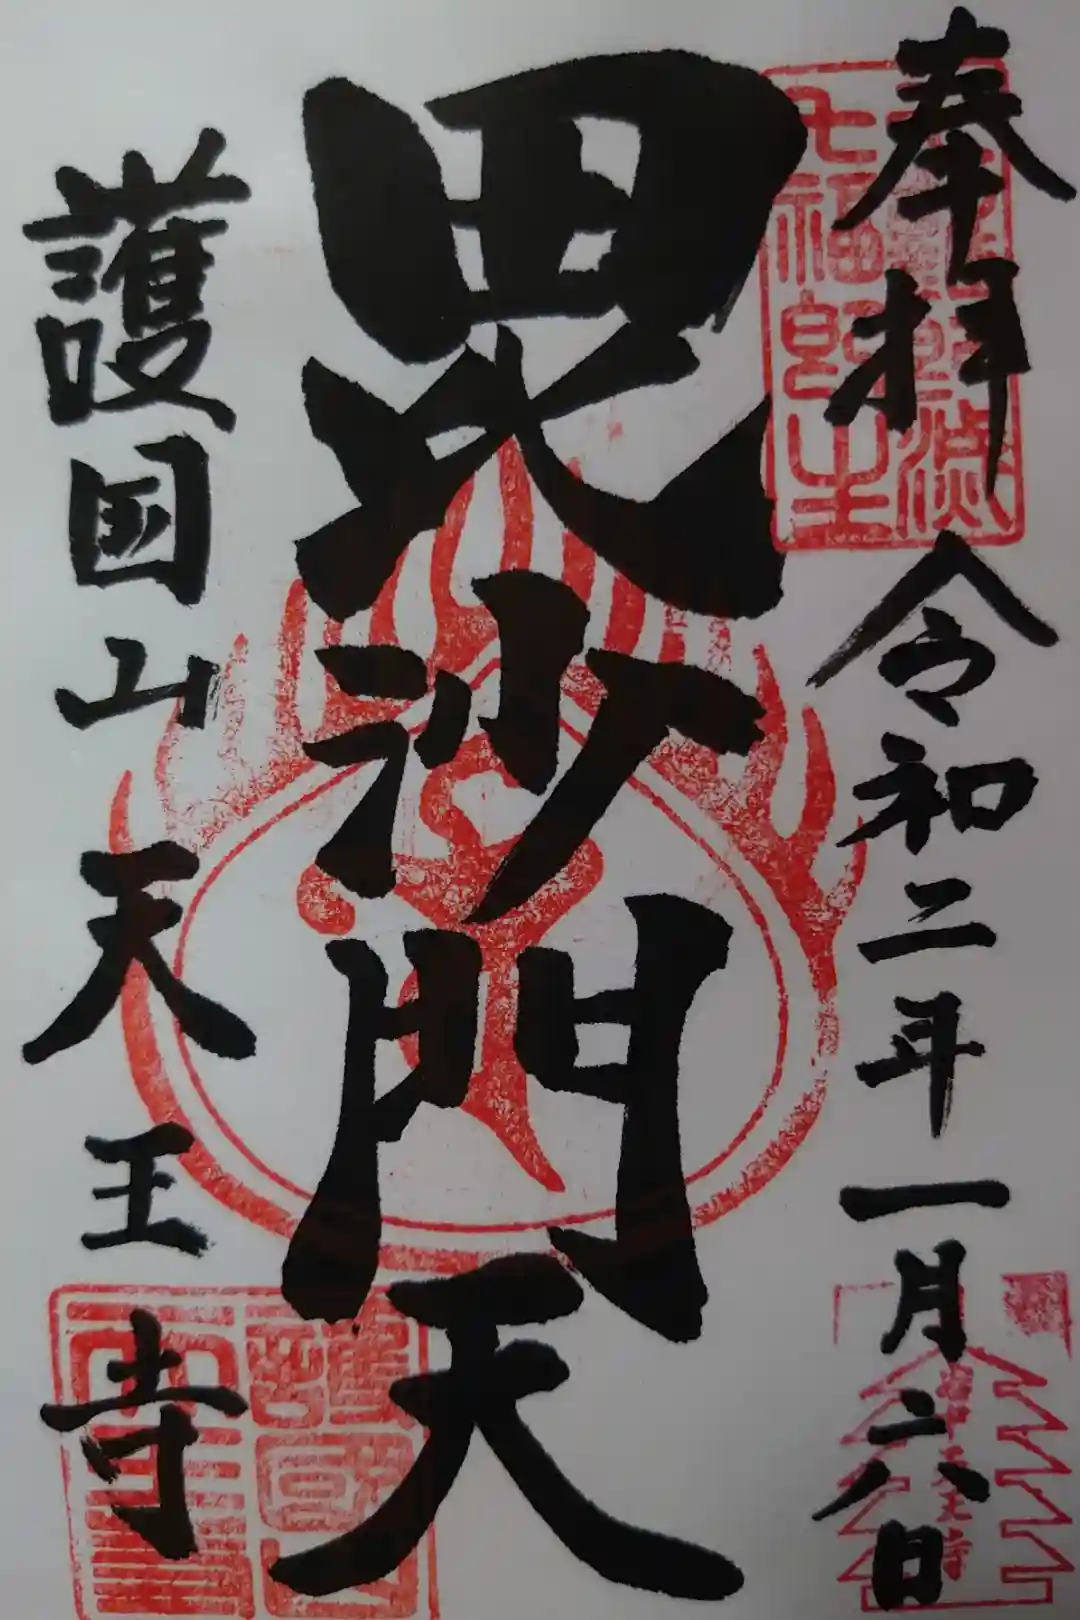 奉拝
令和二年一月二八日
毘沙門天
護国山天王寺
七福